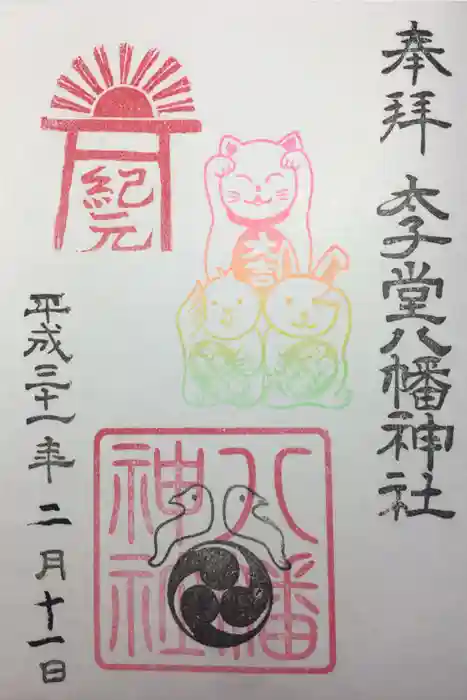 奉拝
太子堂八幡神社
紀元
八幡
神社
平成三十一年二月十一日